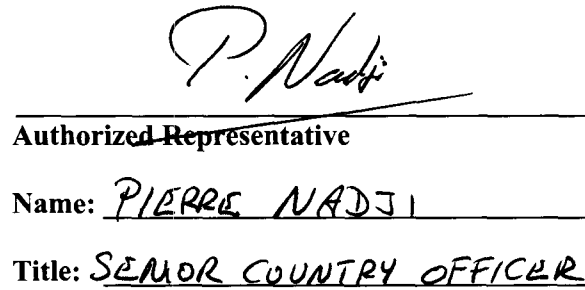 P. Nadji
Authorized Representative
Name: PIERRE NADJI
Title: SENIOR COUNTRY OFFICER